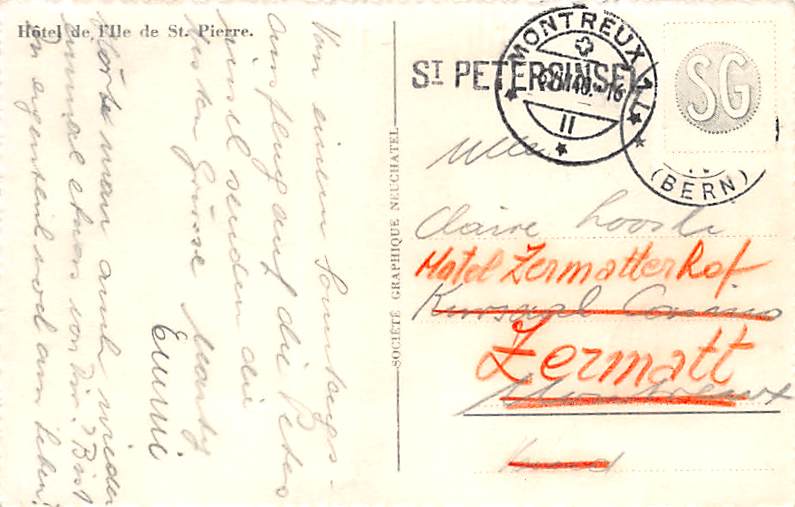 Hôtel de l'Ile de St. Pierre.
Von einem Sonntags-
ausflug auf die Peters
insel senden die
besten Grüsse Marty
Emmi
Hörte man auch wieder
einmal etwas von Dir? Bist
Du eigentlich noch am Leben?
SOCIÉTÉ GRAPHIQUE NEUCHATEL
MONTREUX 1
II
ST PETERSINSEL
(BERN)
SG
Mlle
Claire Loosli
Hotel Zermatterhof
Kursaal Casino
Zermatt
Montreux